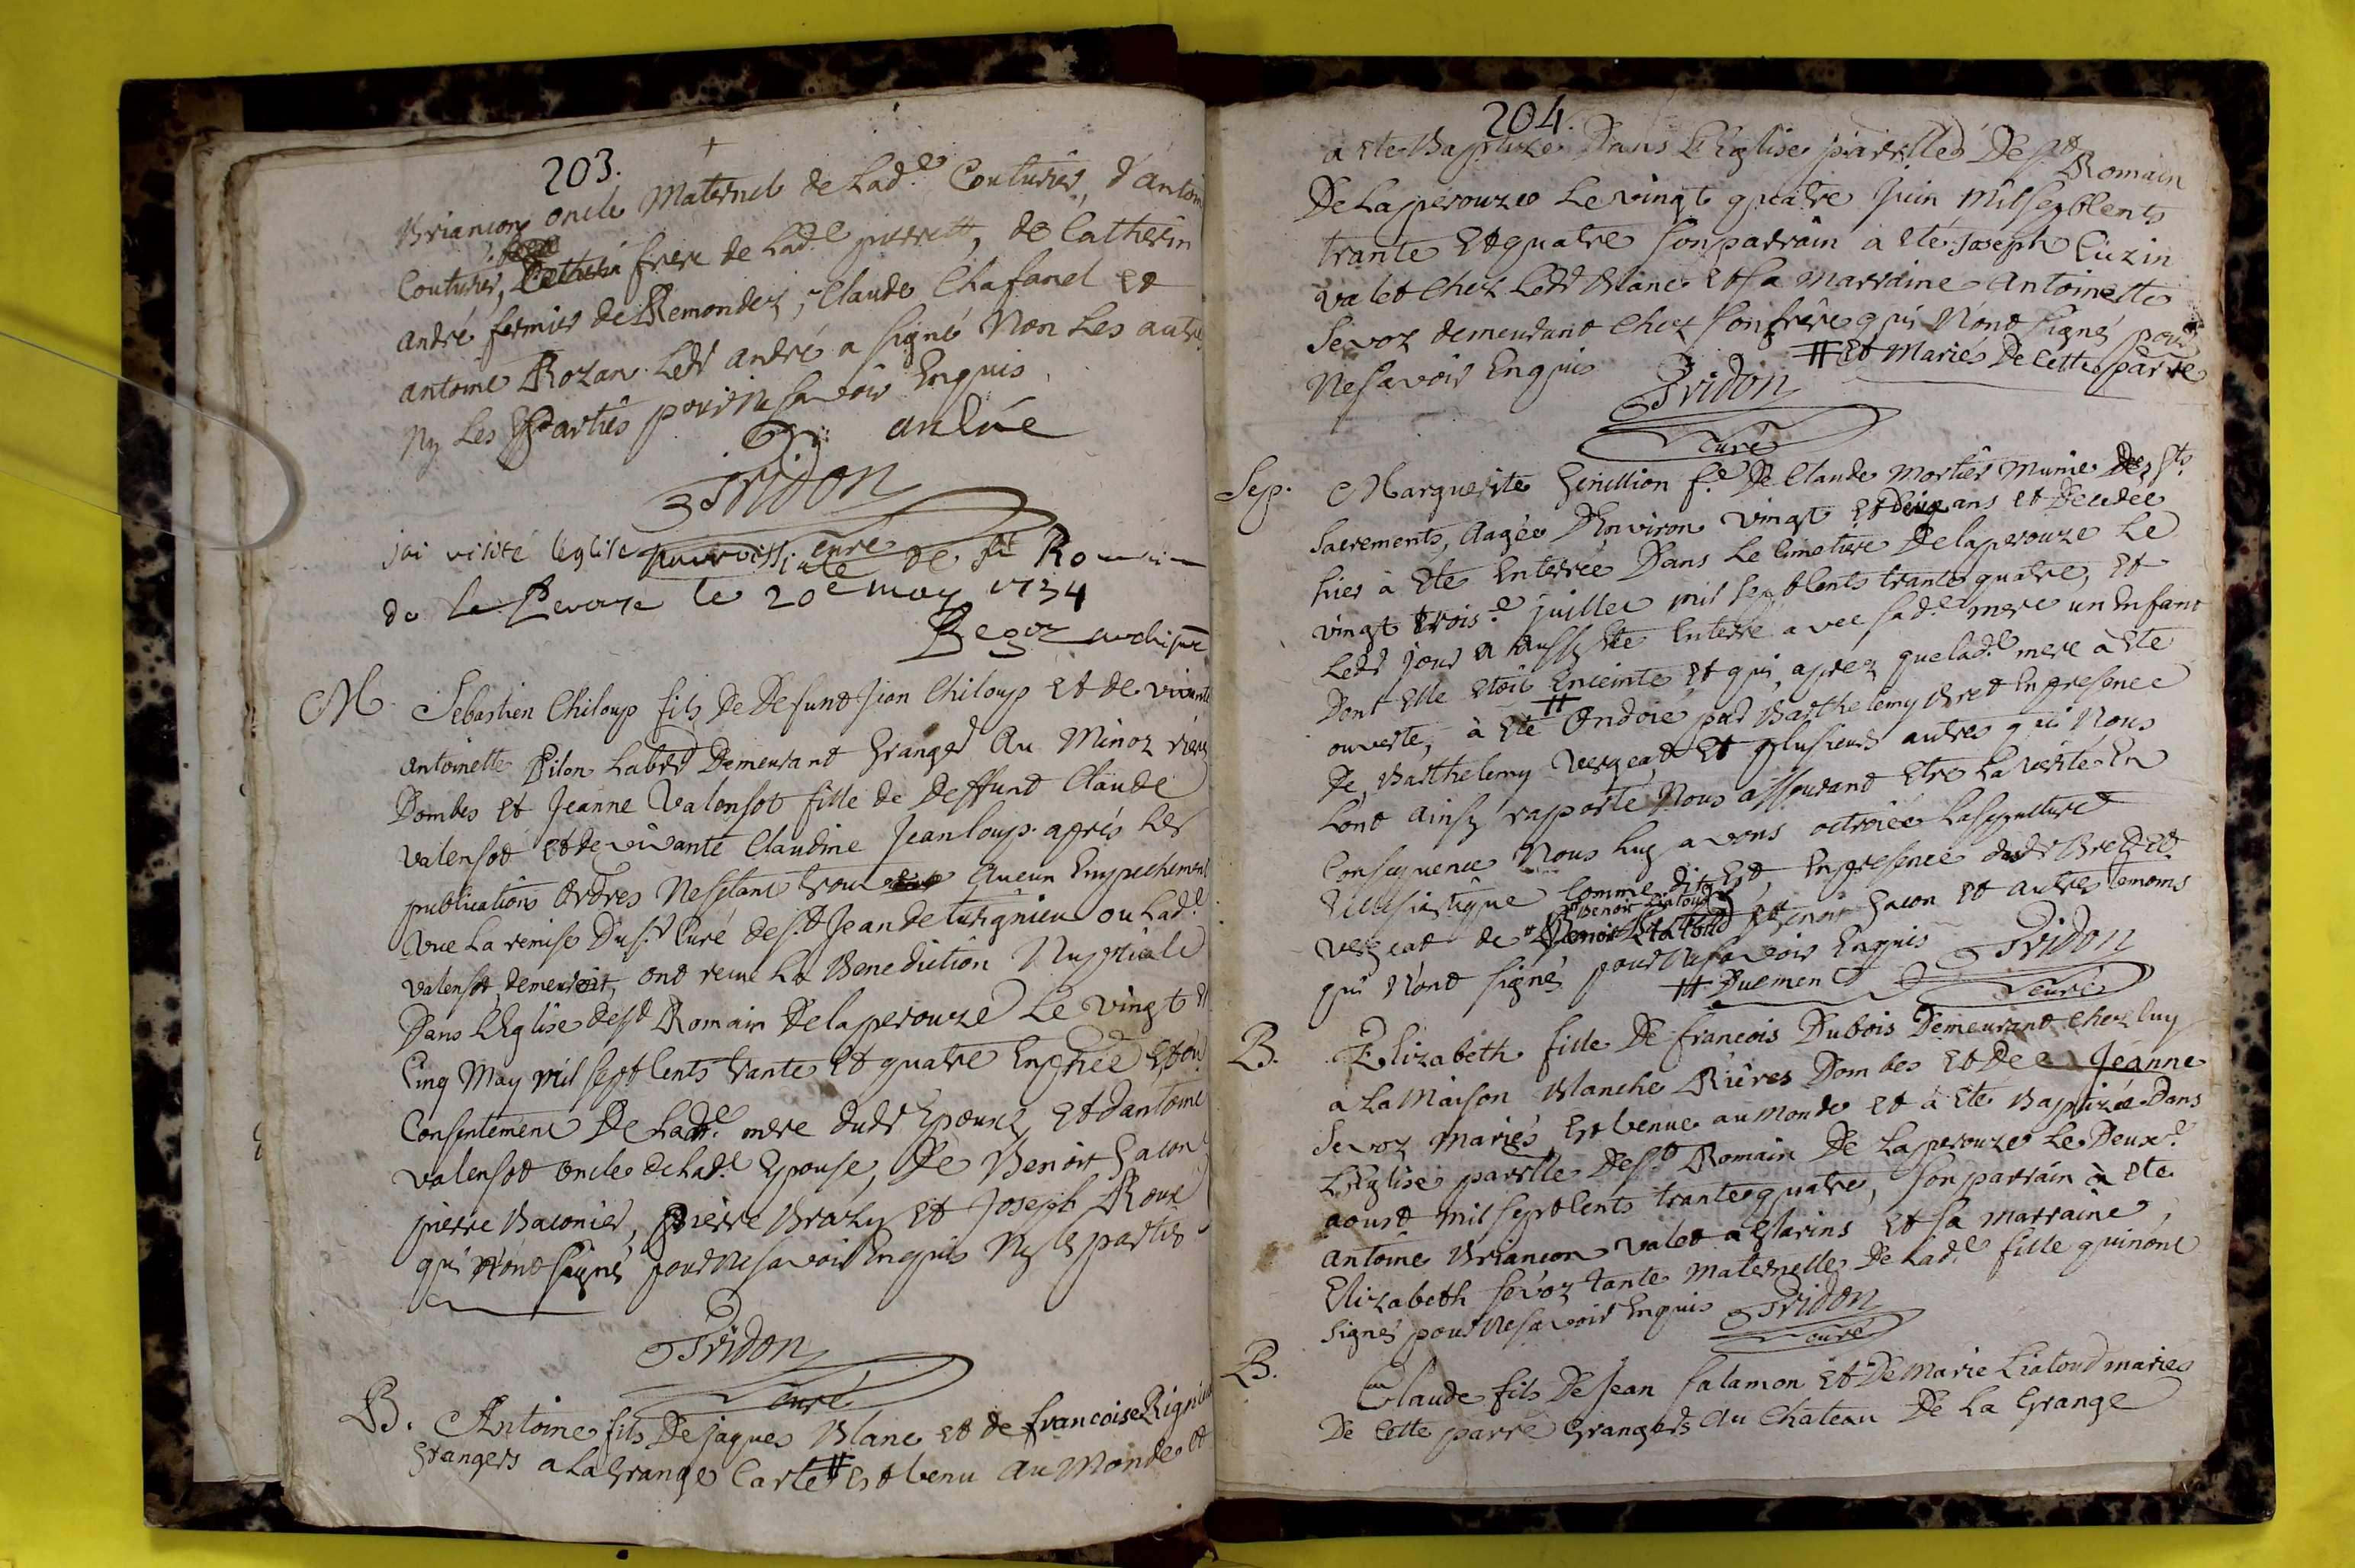 203.
Briançon oncle Maternel de Lad.e Couturier, d'antoin
Couturier, frere de Lad.e perrett, de Catherin
andré fermier de Remondez, Claude Chafanel et
antoine Rozan. Ledt andré a signé Non Les autre
Ny Les Parties pour ne savoir Enquis
andrée
Tridon
curé
jai visité leglise parroissiale de St Romain
de la Perouse le 20e may 1734
Regoz archipr
M. Sebastien Chiloup fils De Defunt Jean Chiloup et de vivante
antoinette Pilon Labr Demeurant Granger Au Minoz rière
Dombes et Jeanne Valensot fille de Deffunt Claude
Valensot et de vivante Claudine Jeanloup. après Les
publications ordres Ne s'etant trouvé Aucun Empechement
vue La remise Du Sr Curé de St Jean de turignieu ou Lad.e
valensot demeuroit, ont recu La Benediction Nuptiale
Dans L'Eglise de St Romain De laperouze Le vingt
Cinq May mil sept Cents trante et quatre En pnce et du
Consentement De Lade. mere dudt Epoux, et d'antoine
Valensot oncle de Lad.e Epouse, De Benoit Gacon
pierre Baconier, pierre Brazy et Joseph Roux
qui N'ont signé pour Ne savoir Enquis Ny les parties
Tridon
curé
B. Antoine fils De jaques Blanc et de francoise Rignieu
Grangers a La Grange Carte # Est venu Au Monde et
204.
a ete Baptizé Dans L'Eglise parrlle De St Romain
De Laperouze Le vingt quatre Juin Mil sept Cents
trante Et quatre son parrain a ete Joseph Cuzin
valet Chez Ledt Blanc et sa Marraine Antoinette
Sevoz demeurant Chez son frère qui N'ont signé pour
Ne savoir Enquis # Et Mariés De Cette parre
Tridon
curé
Sep. Marguerite Genillion f.e De Claude Mortier Munie Des Sts
Sacrements, Aagée D'Environ vingt et Deux ans et Decedée
hier à Eté Enterrée Dans Le Cimetiere De laperouze Le
vingt trois.e juillet mil sept Cents trante quatre, et
Ledt jour a Aussy Ete Enterré avec sad.e mere un Enfant
Dont Elle Etoit Enceinte et qui, aprez que lad.e mere à Ete
ouverte, à Eté # Ondoie par Barthelemy Bret En presence
De, Barthelemy Vergeat et plusieurs autres qui Nous
L'ont Ainsy raporté Nous assurant Etre La verité En
Consequence Nous Luy avons octroiée La sepulture
Ecclesiastique Comme dit Est, En presence dudt Bret dt
Vergeat de Benoit Liatoud Benoit Gacon et autres temoins
qui N'ont signé pour ne savoir Enquis
# Duement
Tridon
curé
B. Elizabeth fille De francois Dubois Demeurant chez luy
a La Maison Blanche Rières Dombes et De Jeanne
Sevoz mariés Est venue au monde et à Eté Baptizée Dans
L'Eglise parrlle De St Romain De Laperouze Le Deux.e
aoust mil sept Cents trante quatre, son parrain à ete
antoine Briancon valet a Glarins et sa marraine,
Elizabeth Sevoz tante maternelle De Lad.e fille qui n'ont
Signé pour Ne savoir Enquis
Tridon
curé
B. Claude fils De Jean Salamon Et De Marie Liatoud maries
De Cette parre Grangers Au Chateau De La Grange